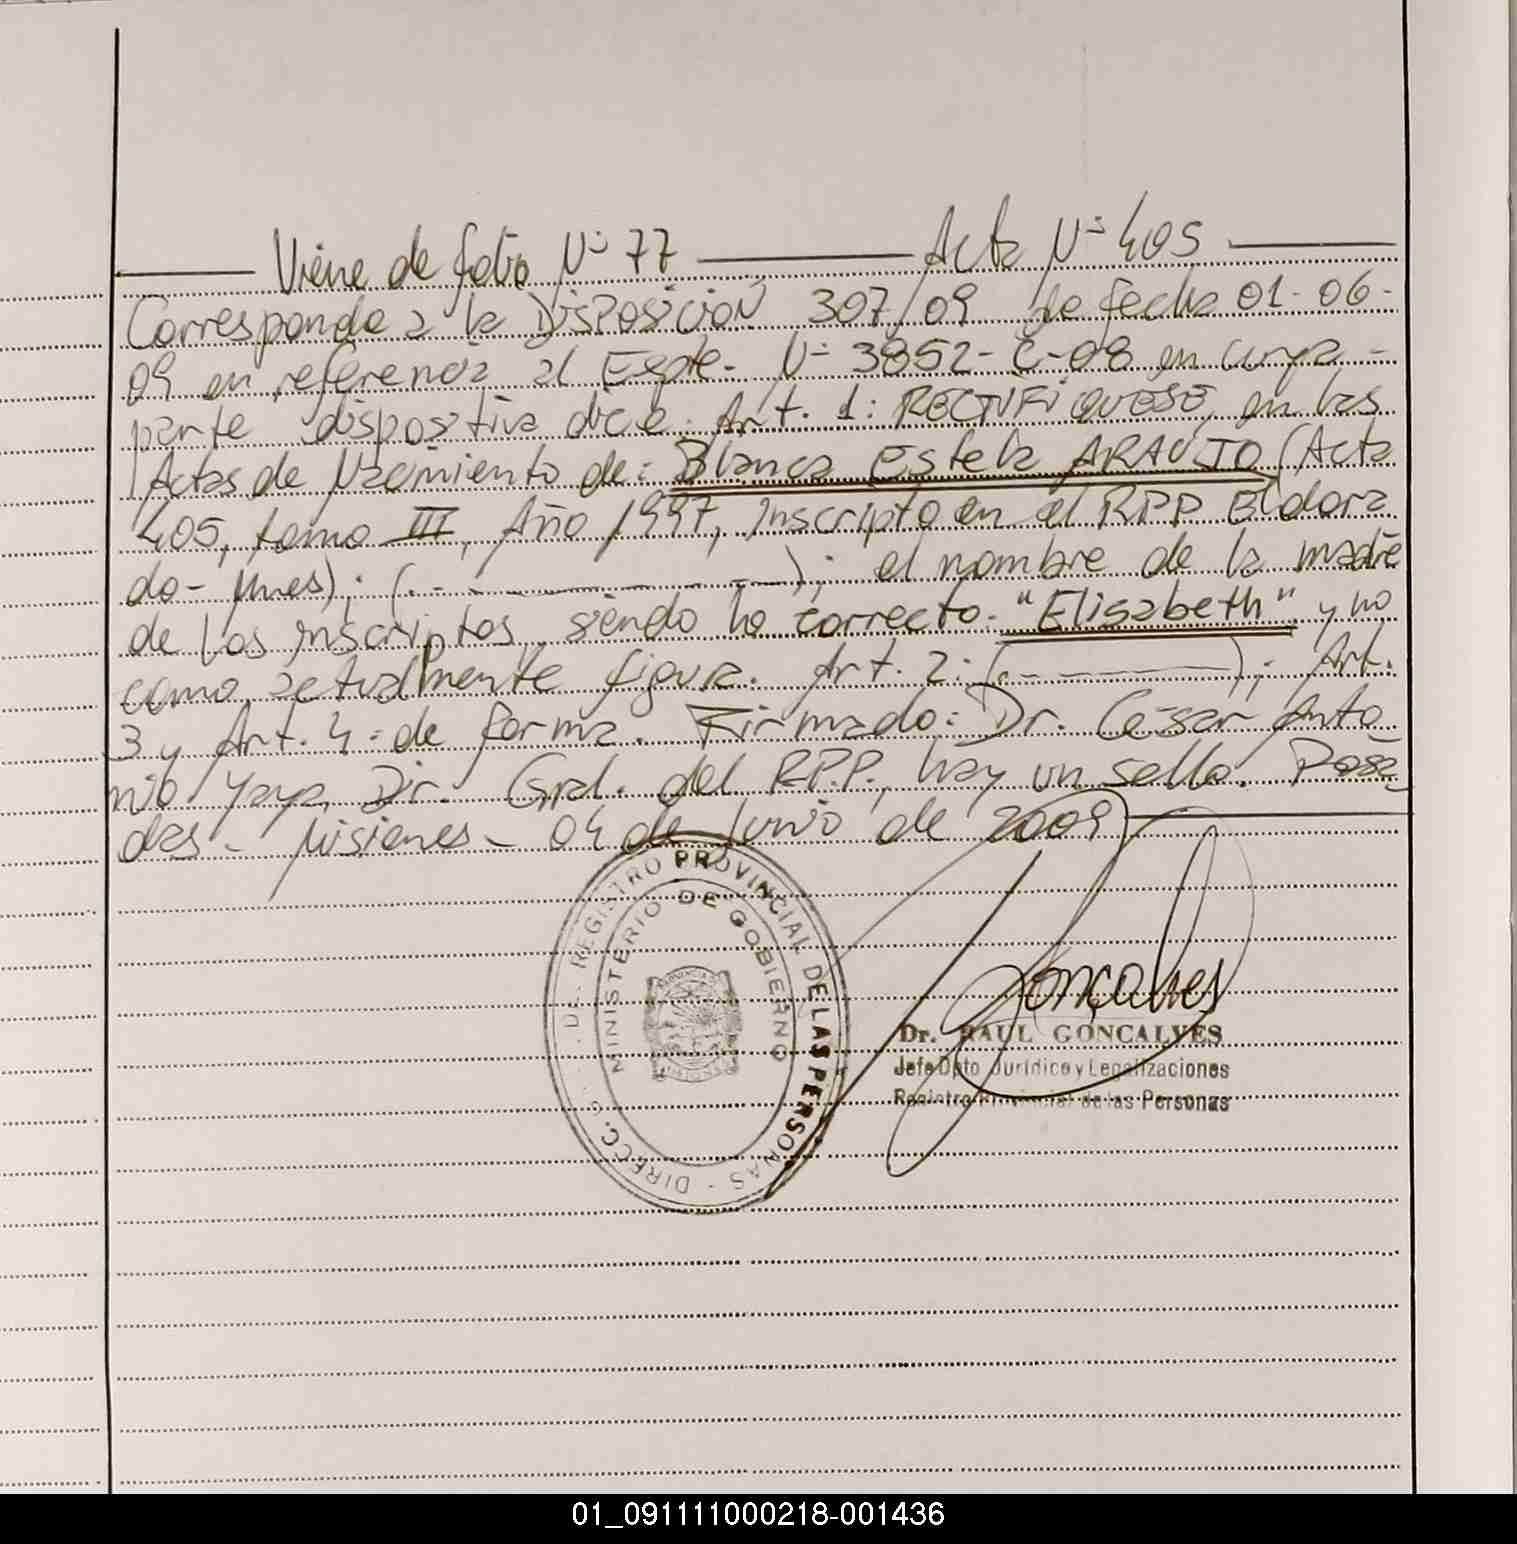 Viene de folio Nº 77 — Acta Nº 405 —
Corresponde a la Disposición 307/09 de fecha 01-06-
09 en referencia al Expte. Nº 3852-C-08 en cuya -
parte dispositiva dice: Art. 1: RECTIFIQUESE, en las
Actas de Nacimiento de: Blanca Estela ARAUJO (Acta
405, tomo III, Año 1997, Inscripto en el RPP Eldora
do - Mnes); (.- - — - —); el nombre de la madre
de los inscriptos, siendo lo correcto: "Elisabeth" y no
como actualmente figura. Art. 2: (.- - —); Art.
3 y Art. 4 - de forma. Firmado: Dr. César Anto
nio Yaya, Dir. Gral. del R.P.P., hay un sello. Posa
das - Misiones - 04 de Junio de 2009 —
DIRECC. DE REGISTRO PROVINCIAL DE LAS PERSONAS -
MINISTERIO DE GOBIERNO
Goncalves
Dr. RAUL GONCALVES
Jefe Dpto Jurídico y Legalizaciones
Registro Provincial de las Personas
01_091111000218-001436